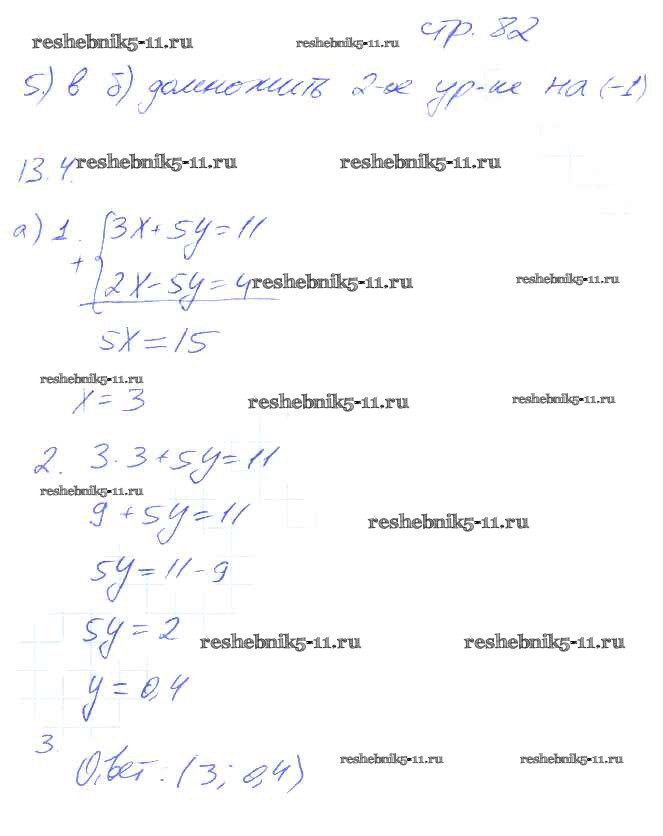 reshebnik5-11.ru reshebnik5-11.ru стр. 82
5.) в б) домножить 2-ое ур-ие на (-1)
13.4. reshebnik5-11.ru reshebnik5-11.ru
а) 1. { 3x + 5y = 11
+ 2x - 5y = 4 reshebnik5-11.ru reshebnik5-11.ru
5x = 15
reshebnik5-11.ru
x = 3 reshebnik5-11.ru reshebnik5-11.ru
2. 3 · 3 + 5y = 11
reshebnik5-11.ru
9 + 5y = 11 reshebnik5-11.ru
5y = 11 - 9
5y = 2 reshebnik5-11.ru reshebnik5-11.ru
y = 0,4
3. Ответ: (3; 0,4) reshebnik5-11.ru reshebnik5-11.ru